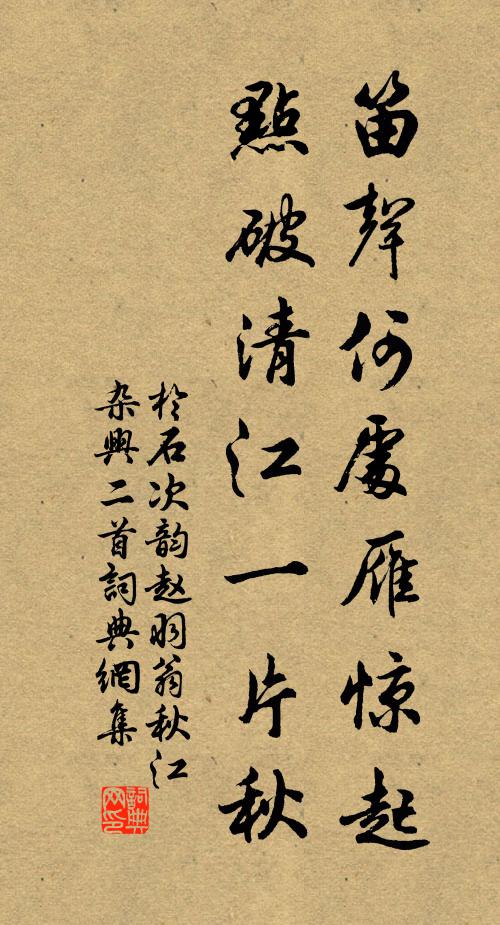 笛聲何處雁惊起
點破清江一片秋
於石次韵赵羽翁秋江
杂興二首詞典網集
詞典網印